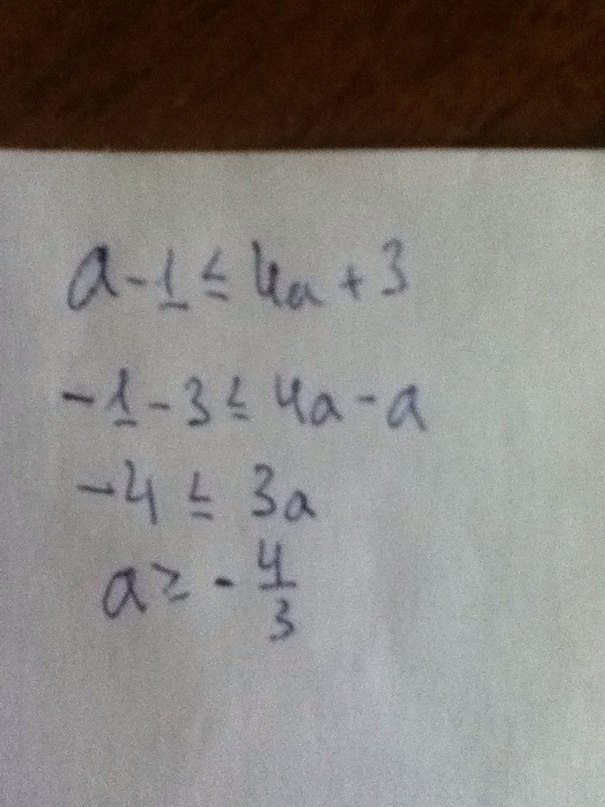 a - 1 ≤ 4a + 3
-1 - 3 ≤ 4a - a
-4 ≤ 3a
a ≥ - 4/3